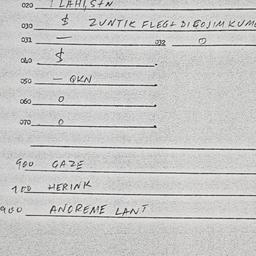 020 LAHI, S+N
030 $ ZUNTIK FLEGL DIBOJIM KUM
031 — 032 0
040 $
050 — QKN
060 0
070 0
900 GAZE
100 HERINK
900 ANOREME LANT